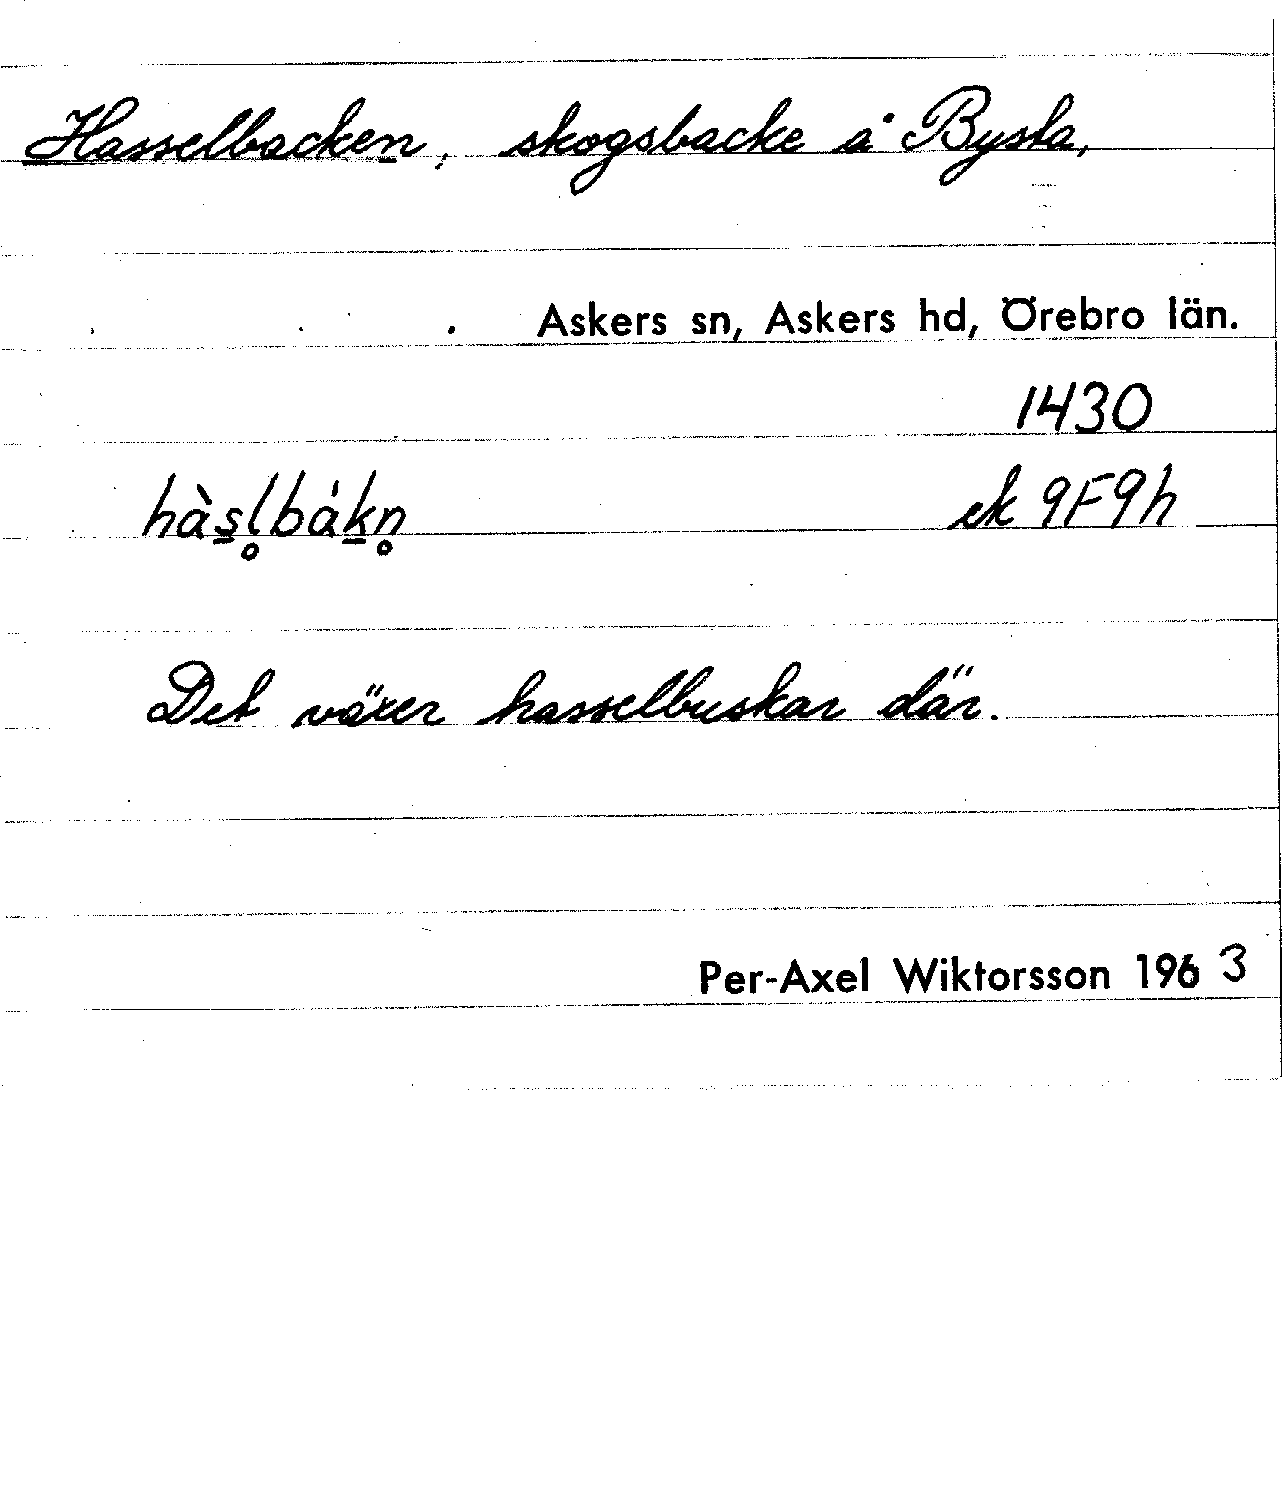 Hasselbacken, skogsbacke å Bysta,
Askers sn, Askers hd, Örebro län.
1430
hàs̲l̥bák̲n̥
ek 9F9h
Det växer hasselbuskar där.
Per-Axel Wiktorsson 1963